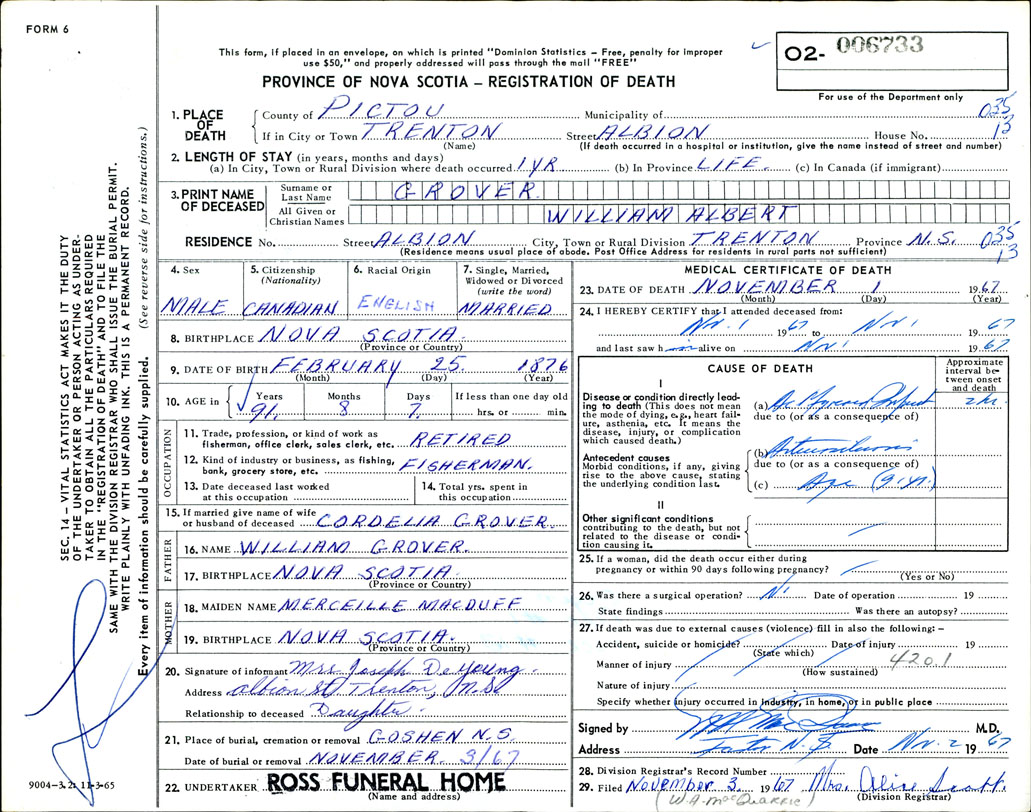 FORM 6
This form, if placed in an envelope, on which is printed "Dominion Statistics – Free, penalty for improper
use $50," and properly addressed will pass through the mail "FREE"
O2- 006733
PROVINCE OF NOVA SCOTIA – REGISTRATION OF DEATH
For use of the Department only
SEC. 14 – VITAL STATISTICS ACT MAKES IT THE DUTY
OF THE UNDERTAKER OR PERSON ACTING AS UNDER-
TAKER TO OBTAIN ALL THE PARTICULARS REQUIRED
IN THE "REGISTRATION OF DEATH" AND TO FILE THE
SAME WITH THE DIVISION REGISTRAR WHO SHALL ISSUE THE BURIAL PERMIT.
WRITE PLAINLY WITH UNFADING INK. THIS IS A PERMANENT RECORD.
Every item of information should be carefully supplied. (See reverse side for instructions.)
1. PLACE OF DEATH
County of PICTOU Municipality of 035
If in City or Town TRENTON Street ALBION House No. 13
(Name) (If death occurred in a hospital or institution, give the name instead of street and number)
2. LENGTH OF STAY (in years, months and days)
(a) In City, Town or Rural Division where death occurred 1 YR (b) In Province LIFE. (c) In Canada (if immigrant)
3. PRINT NAME OF DECEASED
Surname or Last Name GROVER.
All Given or Christian Names WILLIAM ALBERT
RESIDENCE No. Street ALBION City, Town or Rural Division TRENTON Province N.S. 035
13
(Residence means usual place of abode. Post Office Address for residents in rural parts not sufficient)
4. Sex MALE
5. Citizenship (Nationality) CANADIAN
6. Racial Origin ENGLISH
7. Single, Married, Widowed or Divorced (write the word) MARRIED
8. BIRTHPLACE NOVA SCOTIA.
(Province or Country)
9. DATE OF BIRTH FEBRUARY 25. 1876
(Month) (Day) (Year)
10. AGE in Years 91. Months 8 Days 7. If less than one day old hrs. or min.
OCCUPATION
11. Trade, profession, or kind of work as fisherman, office clerk, sales clerk, etc. RETIRED
12. Kind of industry or business, as fishing, bank, grocery store, etc. FISHERMAN.
13. Date deceased last worked at this occupation
14. Total yrs. spent in this occupation
15. If married give name of wife or husband of deceased CORDELIA GROVER.
FATHER
16. NAME WILLIAM GROVER.
17. BIRTHPLACE NOVA SCOTIA.
(Province or Country)
MOTHER
18. MAIDEN NAME MERCEILLE MACDUFF
19. BIRTHPLACE NOVA SCOTIA.
(Province or Country)
20. Signature of informant Mrs Joseph DeYoung.
Address Albion St, Trenton, N.S.
Relationship to deceased Daughter.
21. Place of burial, cremation or removal GOSHEN N.S.
Date of burial or removal NOVEMBER 3/67
22. UNDERTAKER ROSS FUNERAL HOME
(Name and address)
9004-3.2: 11-3-65
MEDICAL CERTIFICATE OF DEATH
23. DATE OF DEATH NOVEMBER 1 1967
(Month) (Day) (Year)
24. I HEREBY CERTIFY that I attended deceased from:
Nov. 1 1967 to Nov 1 1967
and last saw him alive on Nov 1 1967
CAUSE OF DEATH
Approximate interval between onset and death
I
Disease or condition directly leading to death (This does not mean the mode of dying, e.g., heart failure, asthenia, etc. It means the disease, injury, or complication which caused death.)
(a) Ac Myocard Infarct 2 hr.
due to (or as a consequence of)
Antecedent causes
Morbid conditions, if any, giving rise to the above cause, stating the underlying condition last.
(b)
due to (or as a consequence of)
(c) Age (91 yr.)
II
Other significant conditions
contributing to the death, but not related to the disease or condition causing it.
25. If a woman, did the death occur either during
pregnancy or within 90 days following pregnancy?
(Yes or No)
26. Was there a surgical operation? No Date of operation 19
State findings Was there an autopsy?
27. If death was due to external causes (violence) fill in also the following: –
Accident, suicide or homicide? Date of injury 19
(State which)
Manner of injury 420.1
(How sustained)
Nature of injury
Specify whether injury occurred in industry, in home, or in public place
Signed by M.D.
Address N.S. Date Nov. 2 1967
28. Division Registrar's Record Number
29. Filed November 3 1967 Mrs. Alice Scott.
(W.A. MacQuarrie) (Division Registrar)